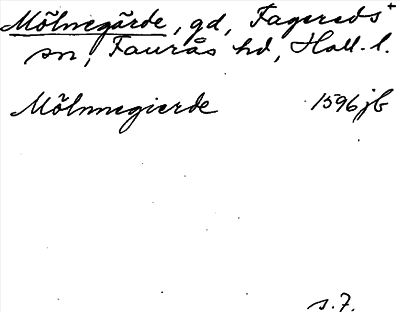 Mölnegärde, gd, Fagereds+
sn, Faurås hd, Hall. l.
Mölnnegierde 1596 jb
s. 7.